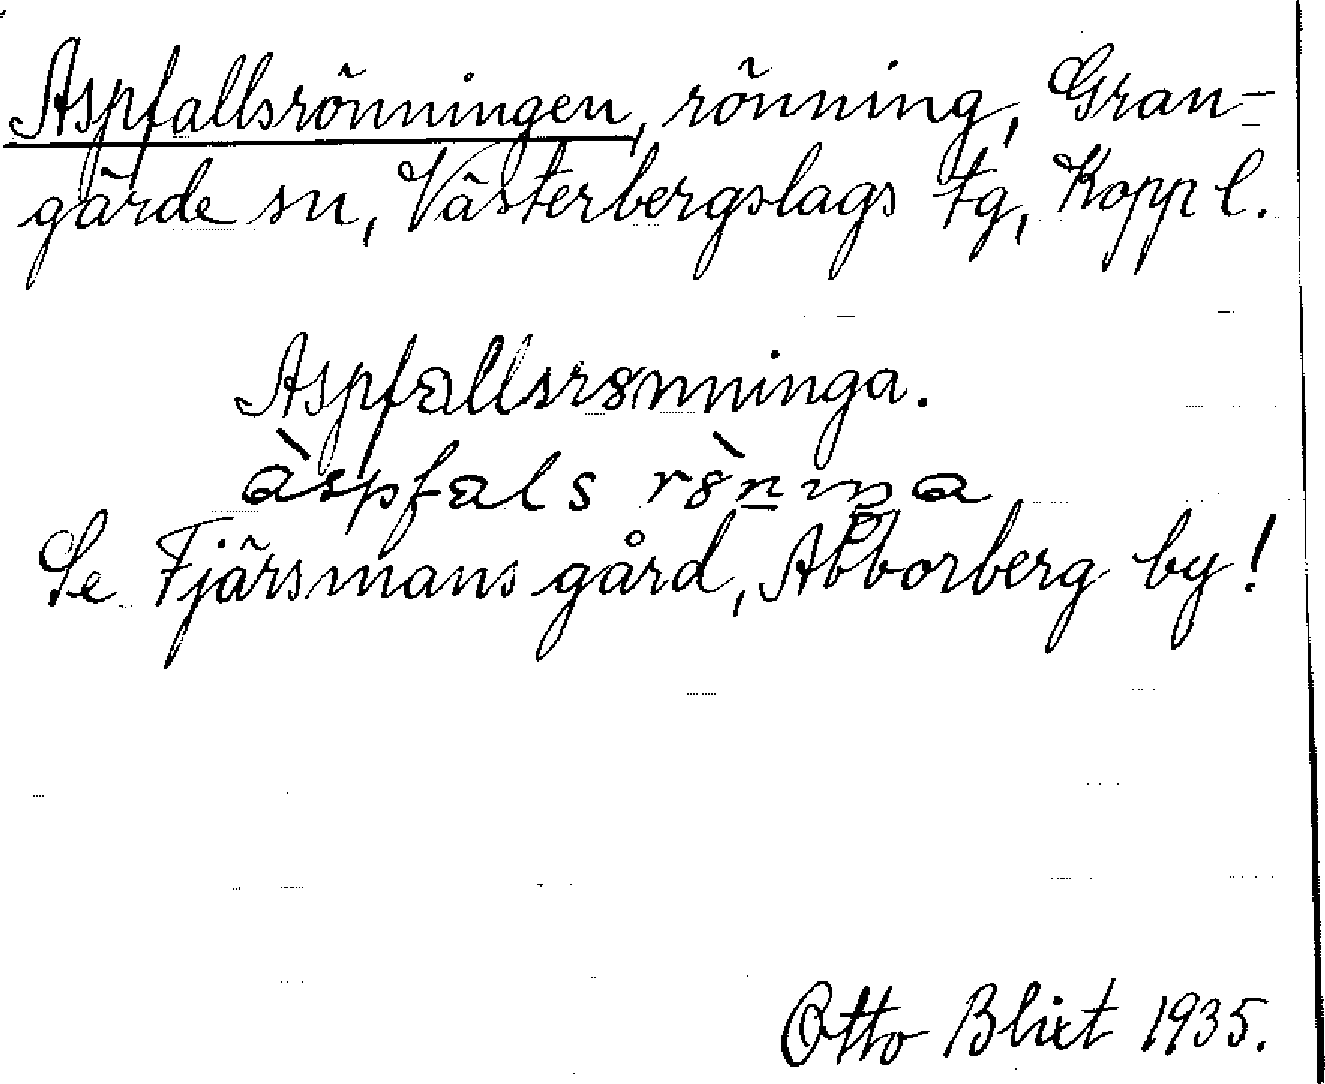 Aspfallsrönningen, rönning, Gran-
gärde sn, Västerbergslags tg, Kopp l.
Aspfallsrönninga.
àspfals rö̀nıŋa
Se Fjärsmans gård, Abborberg by!
Otto Blixt 1935.